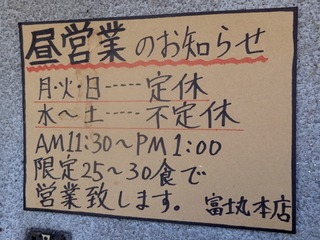 昼営業のお知らせ
月・火・日-----定休
水〜土-----不定休
AM11:30〜PM1:00
限定25〜30食で
営業致します。 富士丸本店